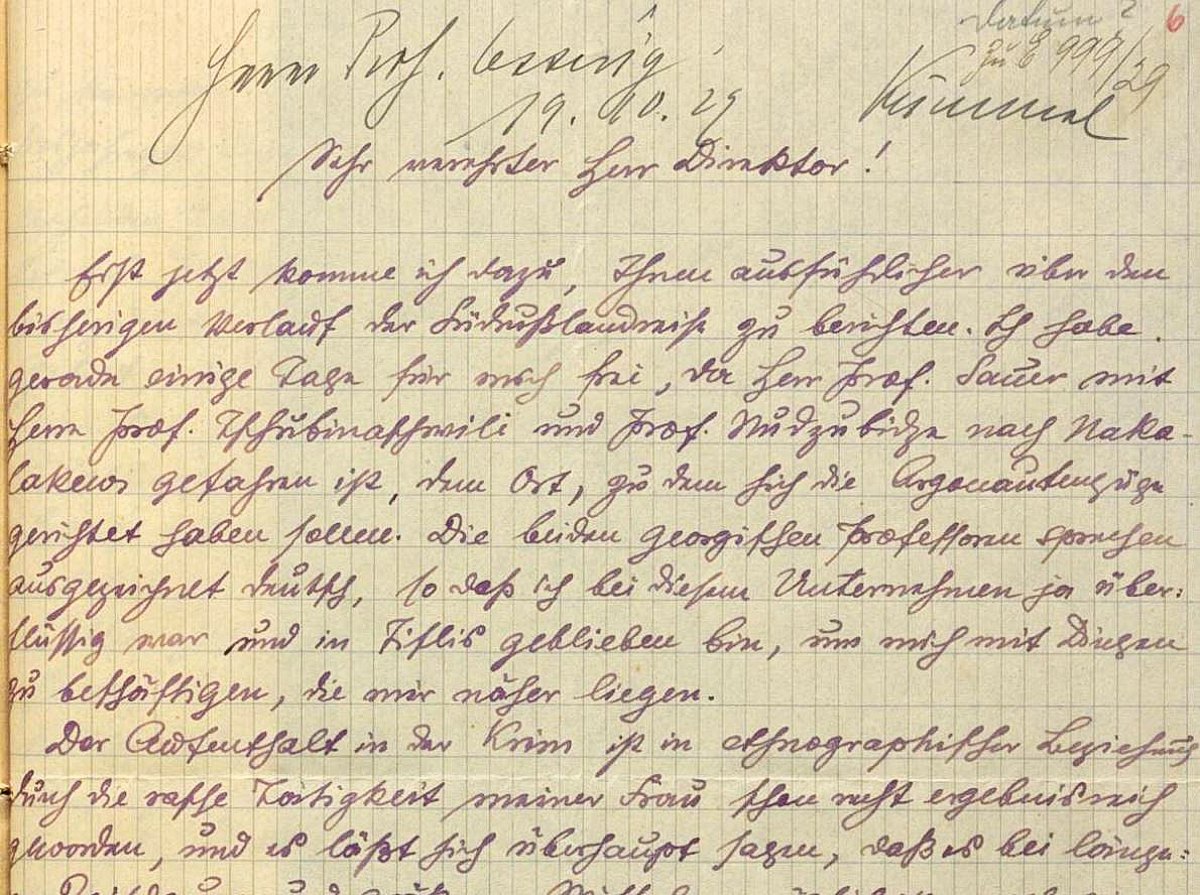 Datum? 6
zu E 999/29
Herrn Prof.
19. 10. 29 Kümmel
Sehr verehrter Herr Direktor!
Erst jetzt komme ich dazu, Ihnen ausführlicher über den
bisherigen Verlauf der Südrußlandreise zu berichten. Ich habe
gerade einige Tage für mich frei, da Herr Prof. Sauer mit
Herrn Prof. Tschubinaschwili und Prof. Nudzubidze nach Naka-
lakewi gefahren ist, dem Ort, zu dem sich die Argonautenzüge
gerichtet haben sollen. Die beiden georgischen Professoren sprechen
ausgezeichnet deutsch, so daß ich bei diesem Unternehmen ja über-
flüssig war und in Tiflis geblieben bin, um mich mit Dingen
zu beschäftigen, die mir näher liegen.
Der Aufenthalt in der Krim ist in ethnographischer Beziehung
durch die rasche Tätigkeit meiner Frau schon recht ergebnisreich
geworden, und es läßt sich überhaupt sagen, daß es bei länge-